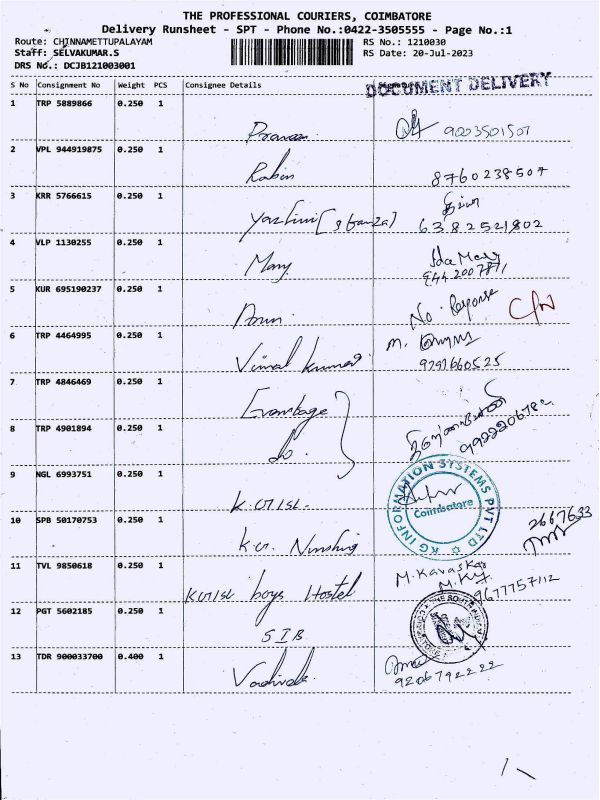 THE PROFESSIONAL COURIERS, COIMBATORE
Delivery Runsheet - SPT - Phone No.:0422-3505555 - Page No.:1
Route: CHINNAMETTUPALAYAM RS No.: 1210030
Staff: SELVAKUMAR.S RS Date: 20-Jul-2023
DRS No.: DCJB121003001
S No Consignment No Weight PCS Consignee Details DOCUMENT DELIVERY
1 TRP 5889866 0.250 1
9003501507
2 VPL 944919875 0.250 1
Robin 8760238507
3 KRR 5766615 0.250 1
6382521802
4 VLP 1130255 0.250 1
Mary Ida Mary
5 KUR 695190237 0.250 1
Arun No. Response
6 TRP 4464995 0.250 1
Vimal Kumar M.
9791660525
7 TRP 4846469 0.250 1
8 TRP 4901894 0.250 1
Do.
9 NGL 6993751 0.250 1
KG INFORMATION SYSTEMS PVT LTD
Coimbatore
10 SPB 50170753 0.250 1
2667633
11 TVL 9850618 0.250 1
boys Hostel M. Kavaskar
9677757112
12 PGT 5602185 0.250 1
SIB
13 TDR 900033700 0.400 1
9206792222